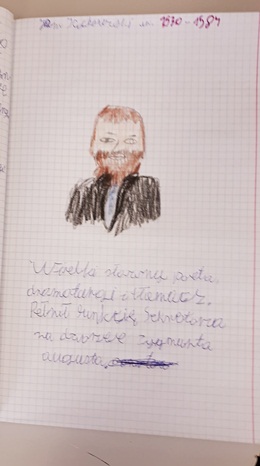 Jan Kochanowski ur. 1530-1584
Wielki sławny poeta,
dramaturg i tłumacz.
Pełnił funkcję Sekretarza
na dworze Zygmunta
augusta